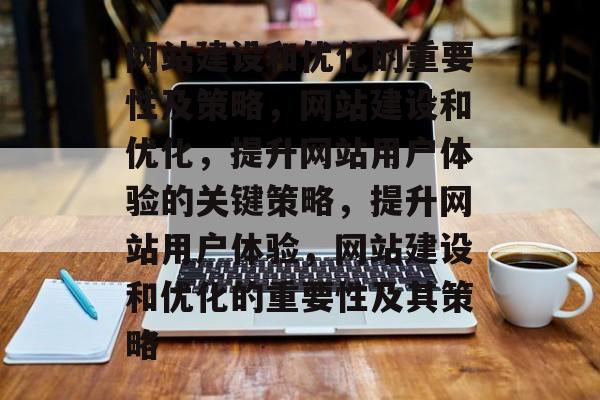 网站建设和优化的重要
性及策略，网站建设和
优化，提升网站用户体
验的关键策略，提升网
站用户体验，网站建设
和优化的重要性及其策
略